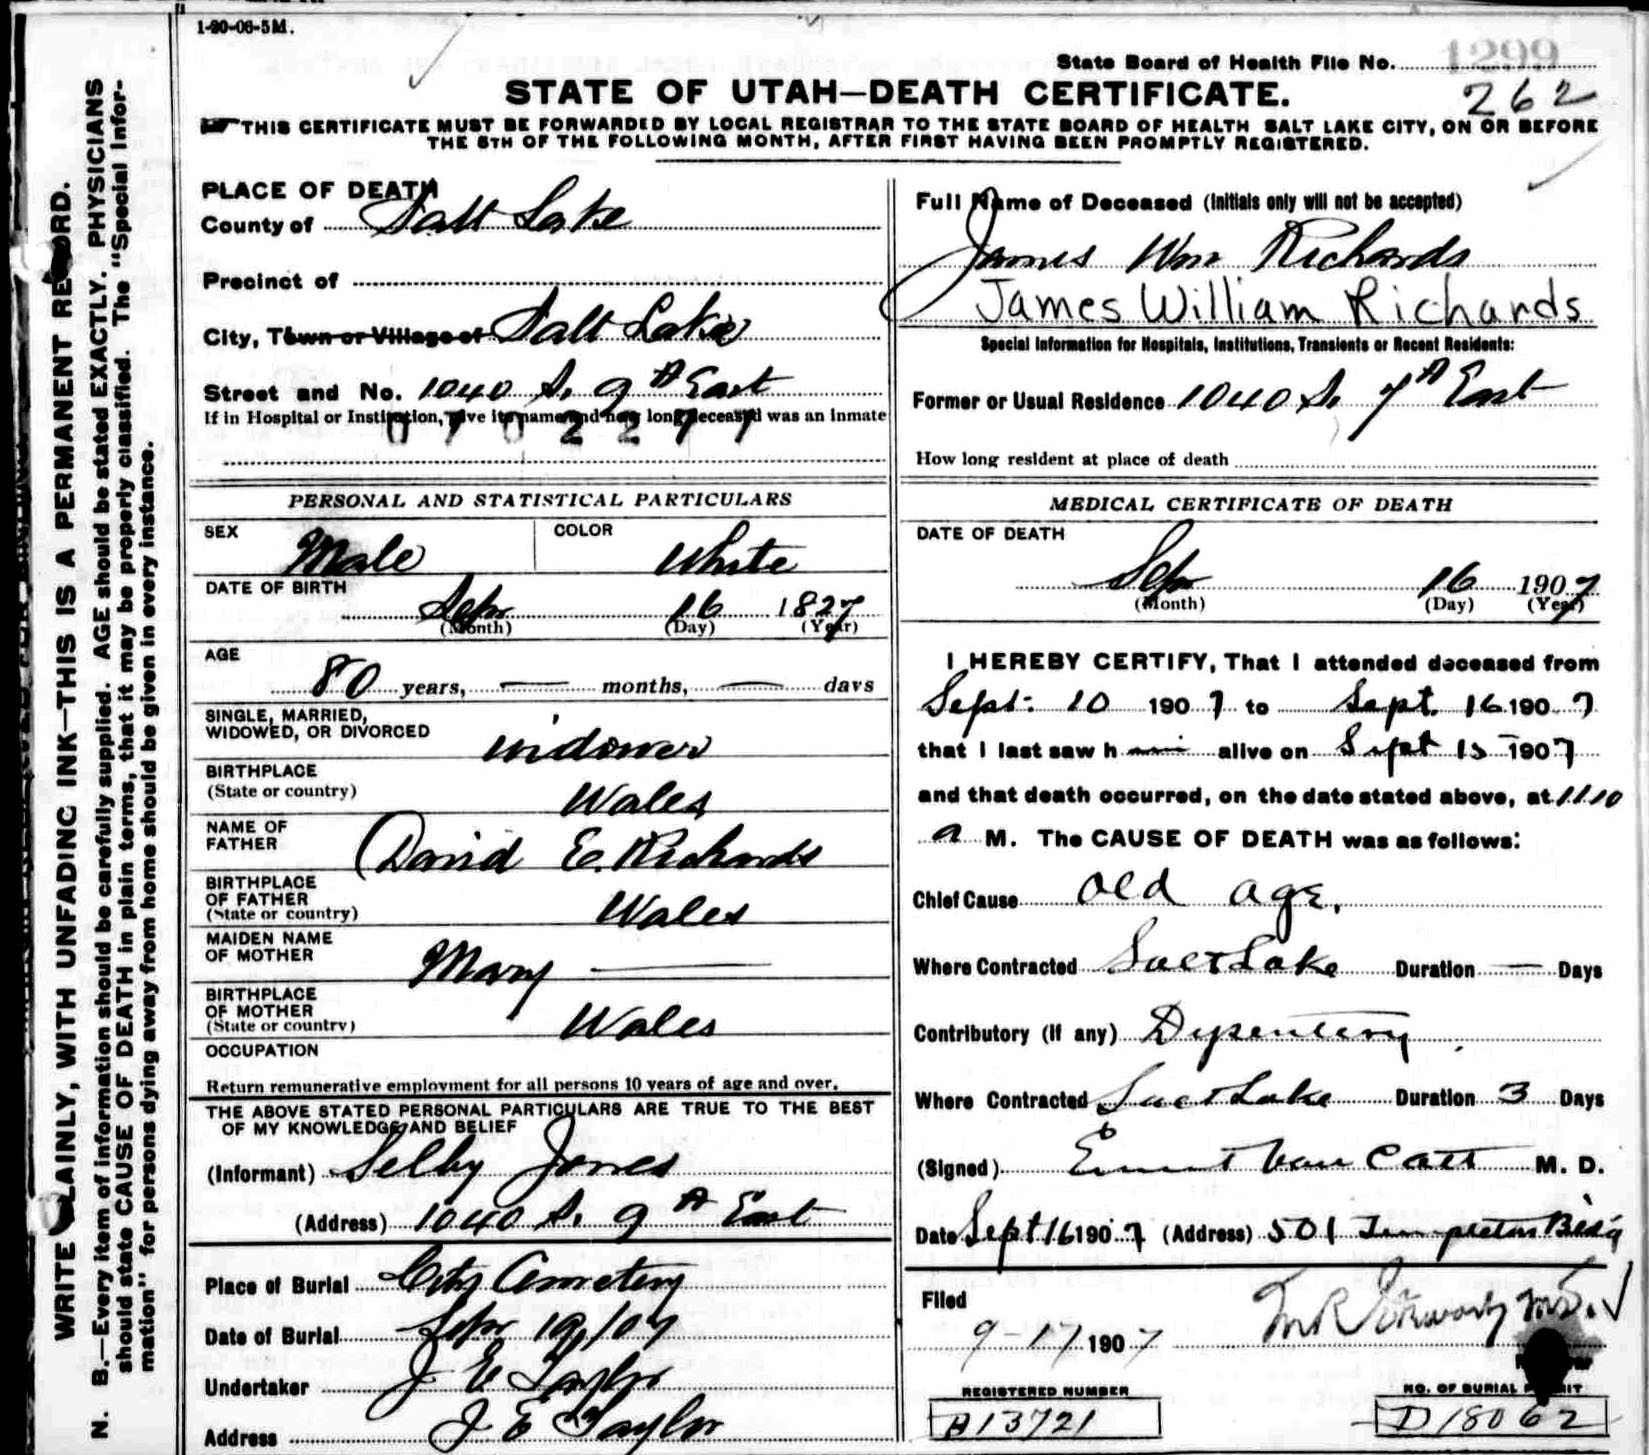 1-20-06-5M.
State Board of Health File No. 1299
STATE OF UTAH—DEATH CERTIFICATE. 262
THIS CERTIFICATE MUST BE FORWARDED BY LOCAL REGISTRAR TO THE STATE BOARD OF HEALTH SALT LAKE CITY, ON OR BEFORE
THE 5TH OF THE FOLLOWING MONTH, AFTER FIRST HAVING BEEN PROMPTLY REGISTERED.
WRITE PLAINLY, WITH UNFADING INK—THIS IS A PERMANENT RECORD.
N. B.—Every item of information should be carefully supplied. AGE should be stated EXACTLY. PHYSICIANS
should state CAUSE OF DEATH in plain terms, that it may be properly classified. The "Special Infor-
mation" for persons dying away from home should be given in every instance.
PLACE OF DEATH
County of Salt Lake
Precinct of
City, Town or Village of Salt Lake
Street and No. 1040 S. 9th East
If in Hospital or Institution, give its name and how long deceased was an inmate
PERSONAL AND STATISTICAL PARTICULARS
SEX Male COLOR White
DATE OF BIRTH
Sep 16 1827
(Month) (Day) (Year)
AGE
80 years, — months, — days
SINGLE, MARRIED,
WIDOWED, OR DIVORCED widower
BIRTHPLACE
(State or country) Wales
NAME OF
FATHER David E. Richards
BIRTHPLACE
OF FATHER
(State or country) Wales
MAIDEN NAME
OF MOTHER Mary —
BIRTHPLACE
OF MOTHER
(State or country) Wales
OCCUPATION
Return remunerative employment for all persons 10 years of age and over.
THE ABOVE STATED PERSONAL PARTICULARS ARE TRUE TO THE BEST
OF MY KNOWLEDGE AND BELIEF
(Informant) Selby Jones
(Address) 1040 S. 9th East
Place of Burial City Cemetery
Date of Burial Sep 19/07
Undertaker J E Taylor
Address J E Taylor
Full Name of Deceased (Initials only will not be accepted)
James Wm Richards
James William Richards
Special Information for Hospitals, Institutions, Transients or Recent Residents:
Former or Usual Residence 1040 S. 9th East
How long resident at place of death
MEDICAL CERTIFICATE OF DEATH
DATE OF DEATH
Sep 16 1907
(Month) (Day) (Year)
I HEREBY CERTIFY, That I attended deceased from
Sept. 10 1907 to Sept. 16 1907
that I last saw h im alive on Sept 15 1907
and that death occurred, on the date stated above, at 11.10
a M. The CAUSE OF DEATH was as follows:
Chief Cause old age.
Where Contracted Salt Lake Duration — Days
Contributory (if any) Dysentery
Where Contracted Salt Lake Duration 3 Days
(Signed) Van Cott M. D.
Date Sept 16 1907 (Address) 501 Templeton Bldg
Filed
9-17 1907
Registrar
REGISTERED NUMBER NO. OF BURIAL PERMIT
A13721 D18062